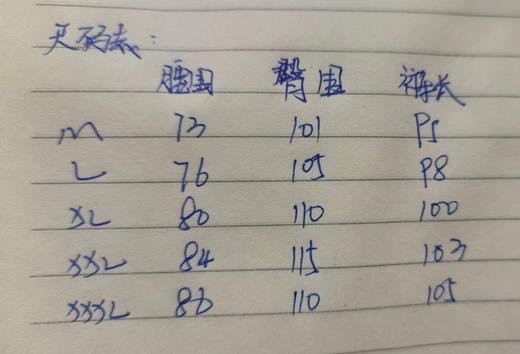 尺码表:
腰围 臀围 裤长
M 73 101 95
L 76 105 98
XL 80 110 100
XXL 84 115 103
XXXL 86 110 105